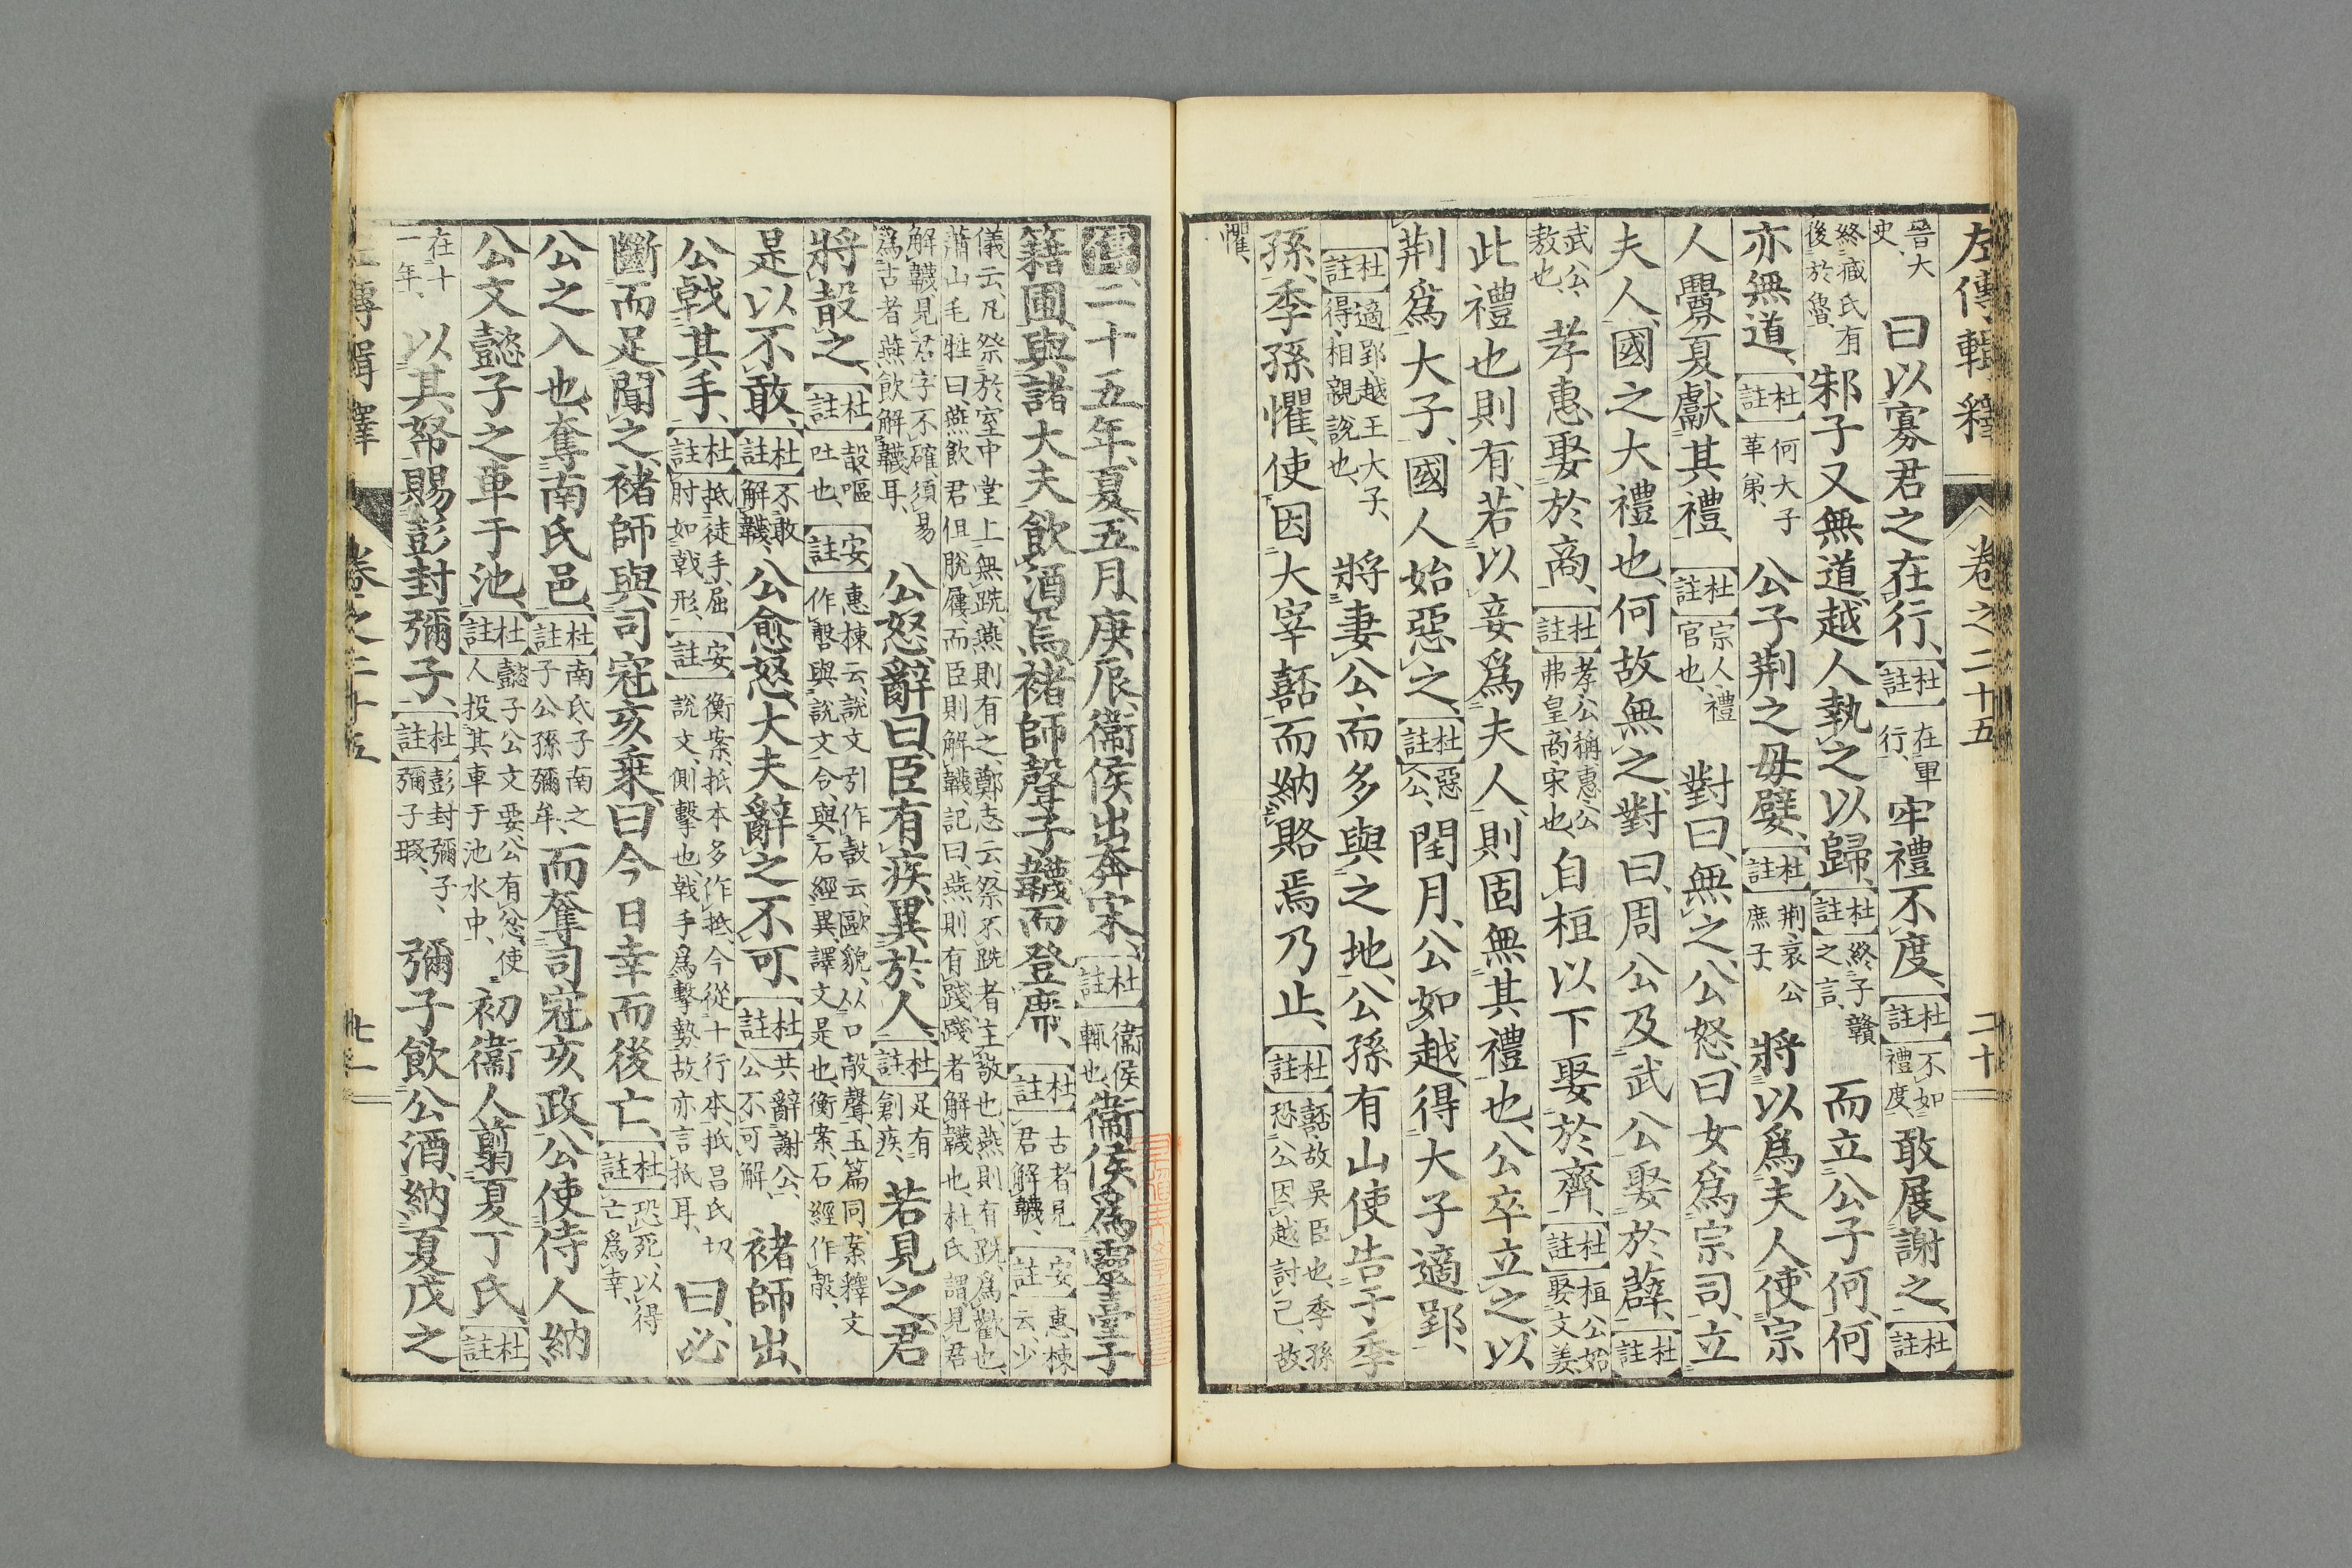 左傳輯釋 卷之二十五 二十
晉大史、曰以寡君之在行、杜註在軍行、牢禮不度、杜註不如禮度、敢展謝之、杜註
終臧氏有後於魯、邾子又無道、越人執之以歸、杜註終子贛之言、而立公子何、何
亦無道、杜註何大子革弟、公子荆之母嬖、杜註荆哀公庶子、將以爲夫人、使宗
人釁夏獻其禮、杜註宗人禮官也、對曰、無之、公怒、曰女爲宗司、立
夫人、國之大禮也、何故無之、對曰、周公及武公娶於薛、杜註
武公、敖也、孝惠娶於商、杜註孝公稱惠公弗皇商、宋也、自桓以下娶於齊、杜註桓公始娶文姜、
此禮也則有、若以妾爲夫人、則固無其禮也、公卒立之、以
荆爲大子、國人始惡之、杜註惡公、閏月、公如越、得大子適郢、
杜註適郢越王大子、得相親說也、將妻公、而多與之地、公孫有山使告于季
孫、季孫懼、使因大宰嚭而納賂焉乃止、杜註嚭故吳臣也、季孫恐公因越討己、故
懼、
傳二十五年、夏、五月、庚辰、衞侯出奔宋、杜註衞侯輒也、衞侯爲靈臺于
籍圃、與諸大夫飲酒焉、褚師聲子韤而登席、杜註古者見君解韤、安註惠棟云、少
儀云、凡祭於室中堂上無跣、燕則有之、鄭志云、祭不跣者、主敬也、燕則有跣、爲歡也、蕭山毛牲曰、燕飲君但脫屨、而臣則解韤、記曰、燕則有踐、踐者解韤也、杜氏謂見君
解韤、見君字不確、須易爲古者燕飲解韤耳、公怒、辭曰、臣有疾、異於人、杜註足有創疾、若見之、君
將嗀之、杜註嗀嘔吐也、安註惠棟云、說文引作嗀云、歐貌、从口㱿聲、玉篇同、案釋文作嗀與說文合、與石經異、譯文是也、衡案、石經作㱿、
是以不敢、杜註不敢解韤、公愈怒、大夫辭之、不可、杜註共辭謝公、公不可解、褚師出、
公戟其手、杜註抵徒手屈肘如戟形、安註衡案、抵本多作抵、今從十行本、抵昌氏切、說文、側擊也、戟手爲擊勢故亦言抵耳、曰、必
斷而足、聞之、褚師與司寇亥乘、曰今日幸而後亡、杜註恐死、以得亡爲幸、
公之入也、奪南氏邑、杜註南氏子南之子公孫彌牟、而奪司寇亥政、公使侍人納
公文懿子之車于池、杜註懿子公文要、公有忿、使人投其車于池水中、初衞人翦夏丁氏、杜註
在十一年、以其帑賜彭封彌子、杜註彭封彌子、彌子瑕、彌子飲公酒、納夏戊之
左傳輯釋 卷之二十五 廿一